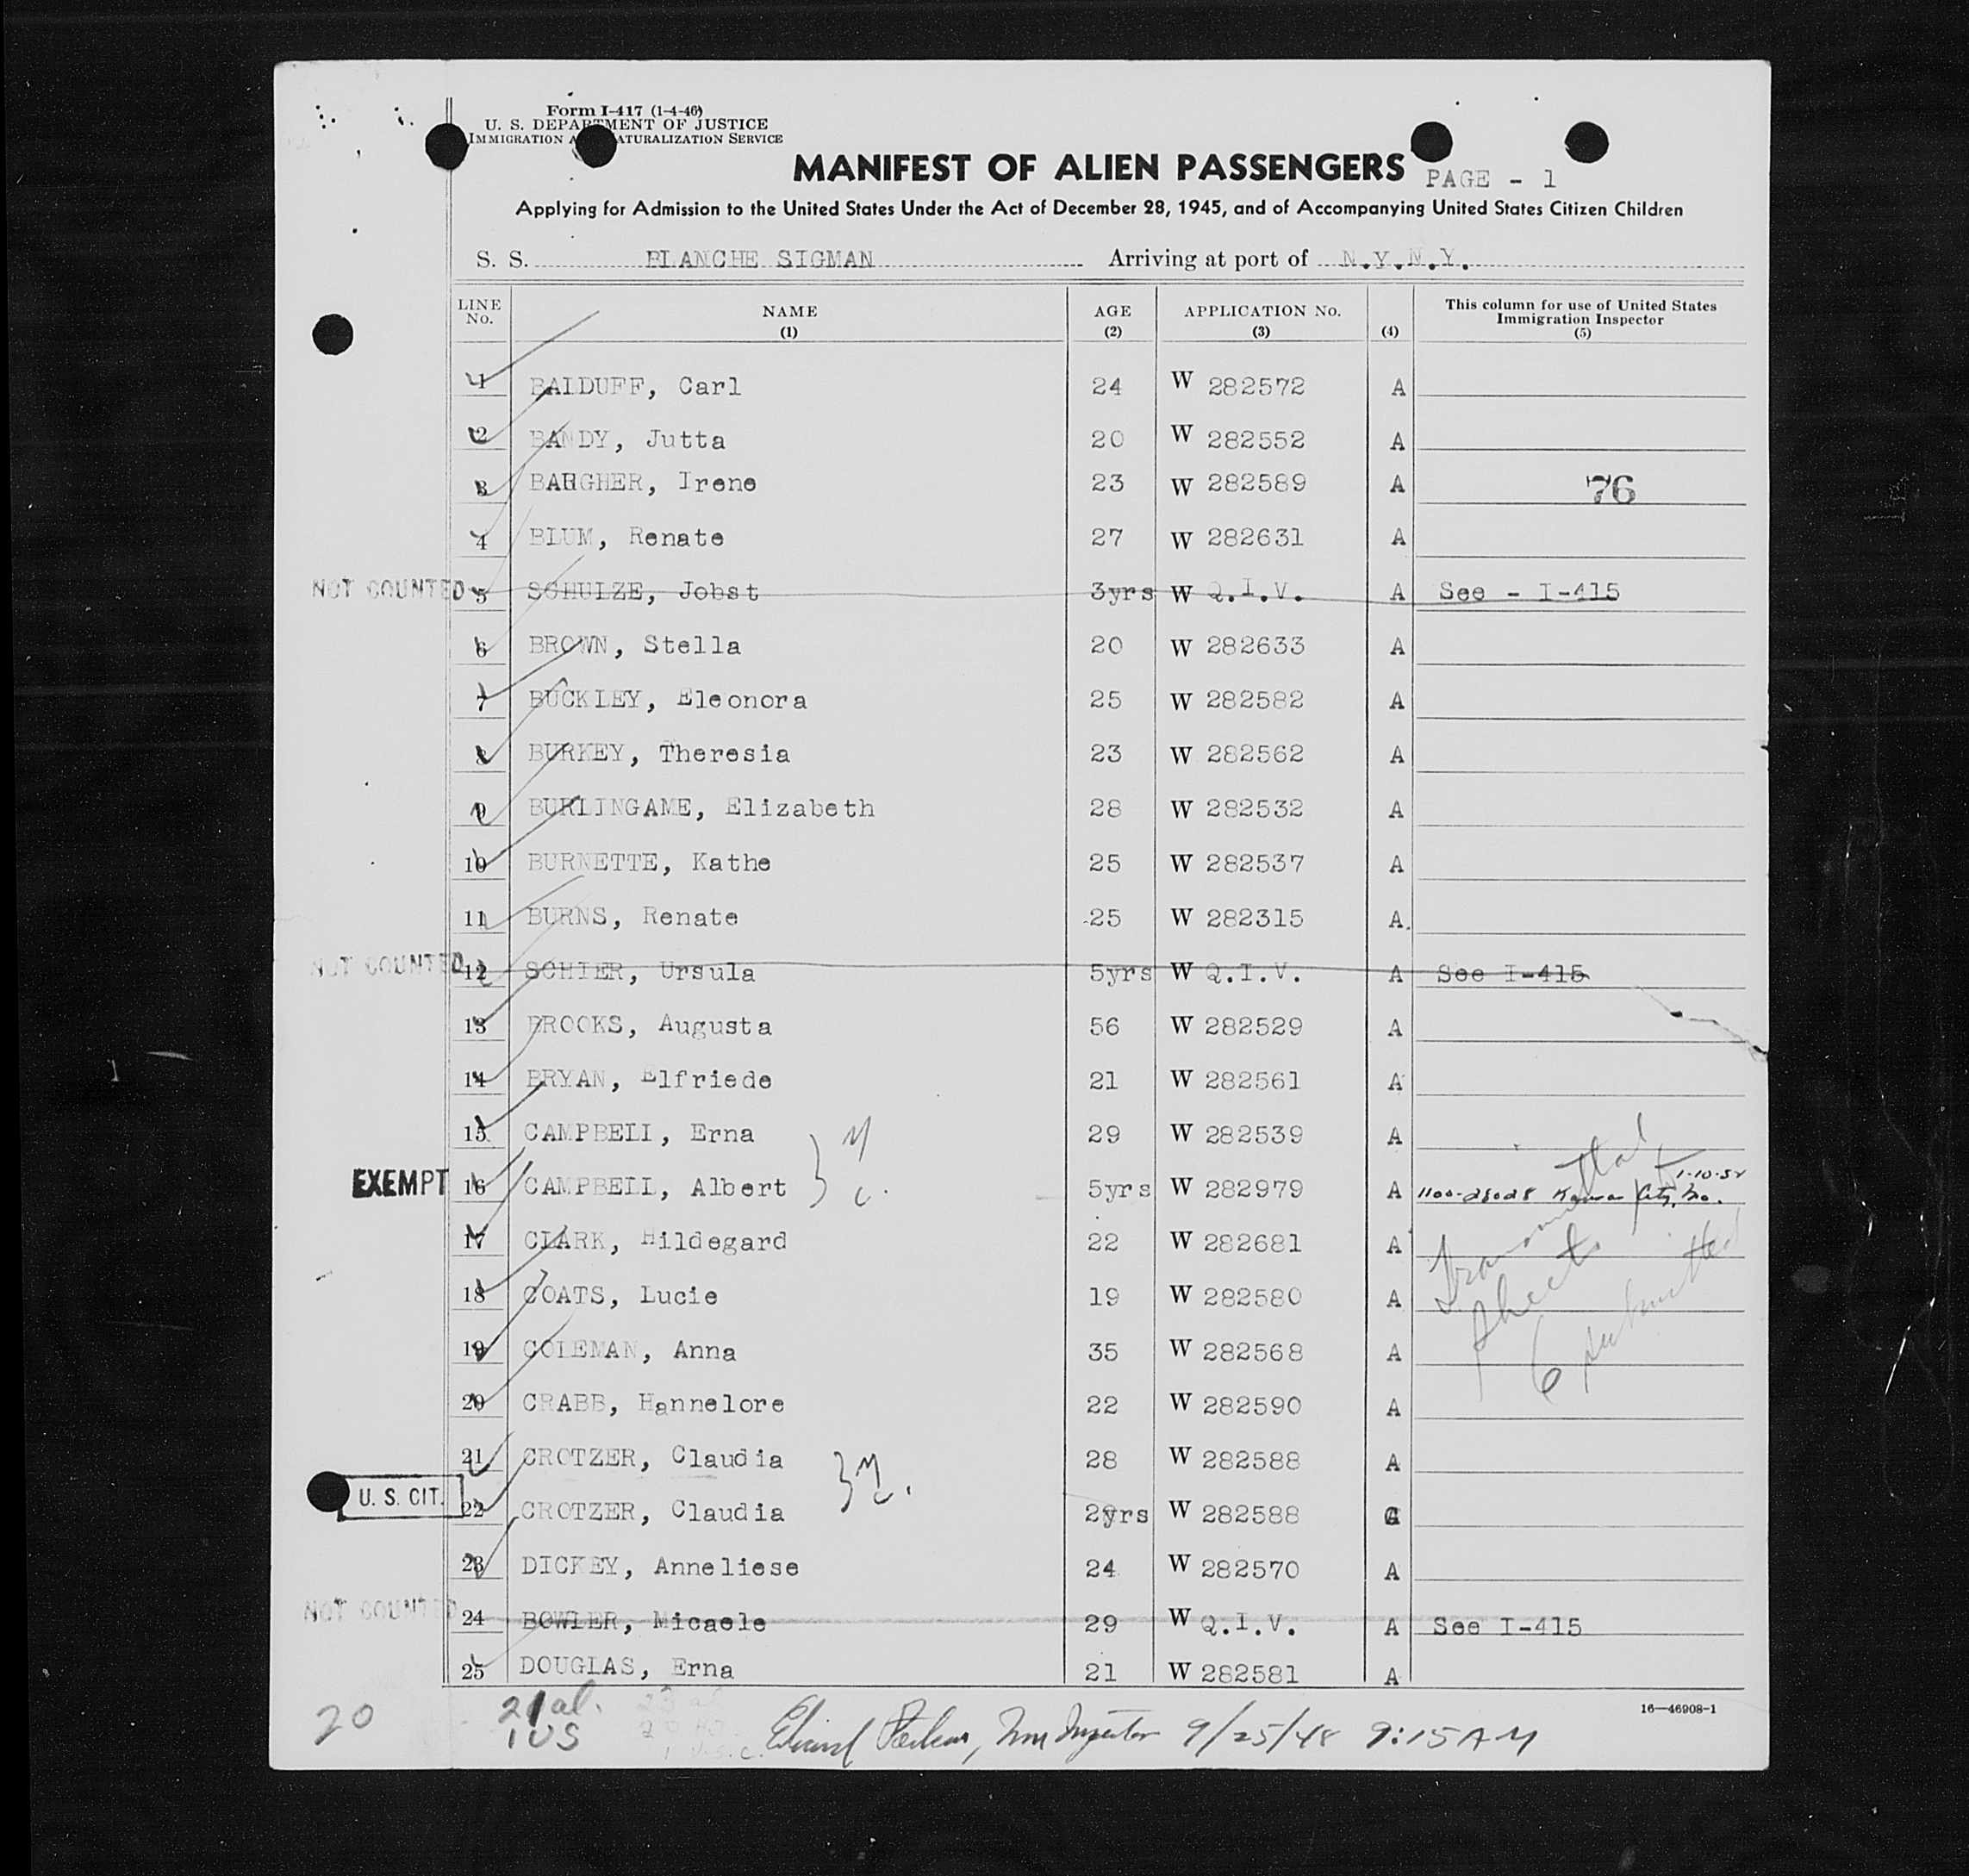 Form I-417 (1-4-46)
U. S. DEPARTMENT OF JUSTICE
IMMIGRATION AND NATURALIZATION SERVICE
MANIFEST OF ALIEN PASSENGERS PAGE - 1
Applying for Admission to the United States Under the Act of December 28, 1945, and of Accompanying United States Citizen Children
S. S. BLANCHE SIGMAN Arriving at port of N.Y.N.Y.
LINE No. NAME (1) AGE (2) APPLICATION No. (3) (4) This column for use of United States Immigration Inspector (5)
1 BALDUFF, Carl 24 W 282572 A
2 BANDY, Jutta 20 W 282552 A
3 BARGHER, Irene 23 W 282589 A 76
4 BLUM, Renate 27 W 282631 A
NOT COUNTED 5 SCHULZE, Jobst 3yrs W Q.I.V. A See - I-415
6 BROWN, Stella 20 W 282633 A
7 BUCKLEY, Eleonora 25 W 282582 A
8 BURKEY, Theresia 23 W 282562 A
9 BURLINGAME, Elizabeth 28 W 282532 A
10 BURNETTE, Kathe 25 W 282537 A
11 BURNS, Renate 25 W 282315 A
NOT COUNTED 12 SCHIER, Ursula 5yrs W Q.I.V. A See I-415
13 BROOKS, Augusta 56 W 282529 A
14 BRYAN, Elfriede 21 W 282561 A
15 CAMPBELL, Erna 29 W 282539 A
EXEMPT 16 CAMPBELL, Albert 5yrs W 282979 A 1100-28028 Kansas City, Mo. 1-10-52
17 CLARK, Hildegard 22 W 282681 A
18 COATS, Lucie 19 W 282580 A
19 COLEMAN, Anna 35 W 282568 A
20 CRABB, Hannelore 22 W 282590 A
Transmittal sheet
6 submitted
21 CROTZER, Claudia 28 W 282588 A
U. S. CIT. 22 CROTZER, Claudia 2yrs W 282588 C
23 DICKEY, Anneliese 24 W 282570 A
NOT COUNTED 24 BOWLER, Micaele 29 W Q.I.V. A See I-415
25 DOUGLAS, Erna 21 W 282581 A
16—46908-1
20 21 al.
1 US
Imm Inspector 9/25/48 9:15 AM